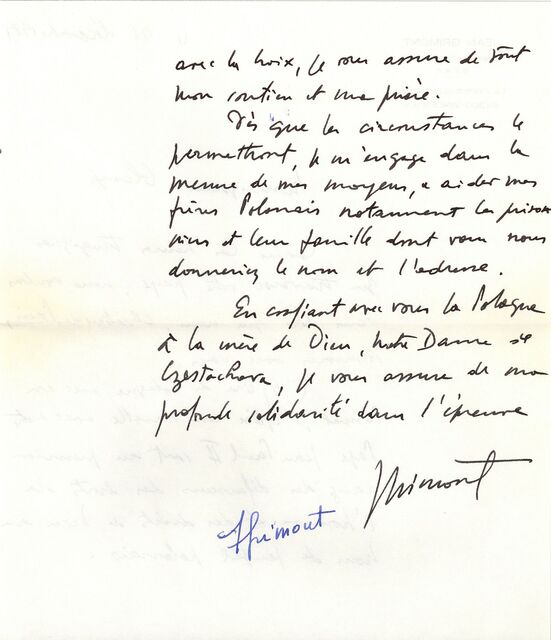 avec la croix, je vous assure de tout
mon soutien et ma prière.
Dès que les circonstances le
permettront, je m'engage dans la
mesure de mes moyens, a aider mes
frères Polonais notamment les prison
niers et leur famille dont vous nous
donneriez le nom et l'adresse.
En confiant avec vous la Pologne
à la mère de Dieu, Notre Dame de
Czestochova, je vous assure de ma
profonde solidarité dans l'épreuve
JGrimont
Grimont